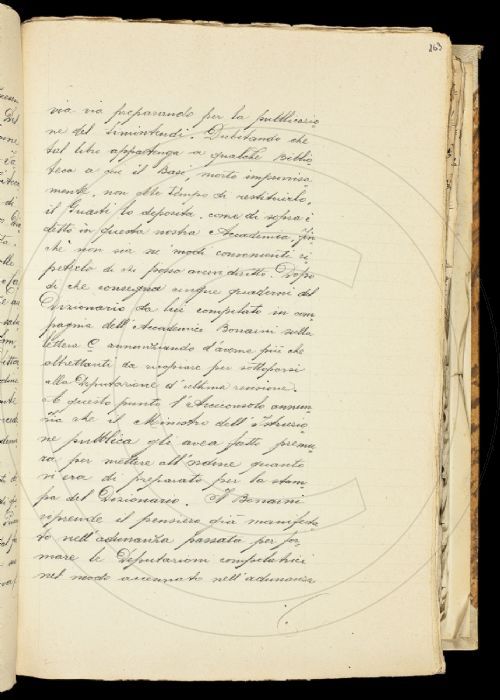 263
via via preparando per la pubblicazio
ne del Simintendi. Dubitando che
tal libro appartenga a qualche Biblio
teca a cui il Basi morto improvvisa
mente, non ebbe tempo di restituirlo,
il Guasti lo deposita, come di sopra è
detto in questa nostra Accademia, fin
chè non sia ne' modi convenienti ri
petuto da chi possa avervi diritto. Dopo
di che consegna cinque quaderni del
Dizionario da lui compilato in com
pagnia dell'Accademico Bonaini sulla
lettera C annunziando d'averne più che
altrettanti da ricopiare per sottoporsi
alla Deputazione d'ultima revisione.
A questo punto l'Arciconsolo annun
zia che il Ministro dell'Istruzio
ne pubblica gli avea fatto premu
ra per mettere all'ordine quanto
vi era di preparato per la stam
pa del Dizionario. Il Bonaini
riprende il pensiero già manifesta
to nell'adunanza passata per for
mare le Deputazioni compilatrici
nel modo accennato nell'adunanza